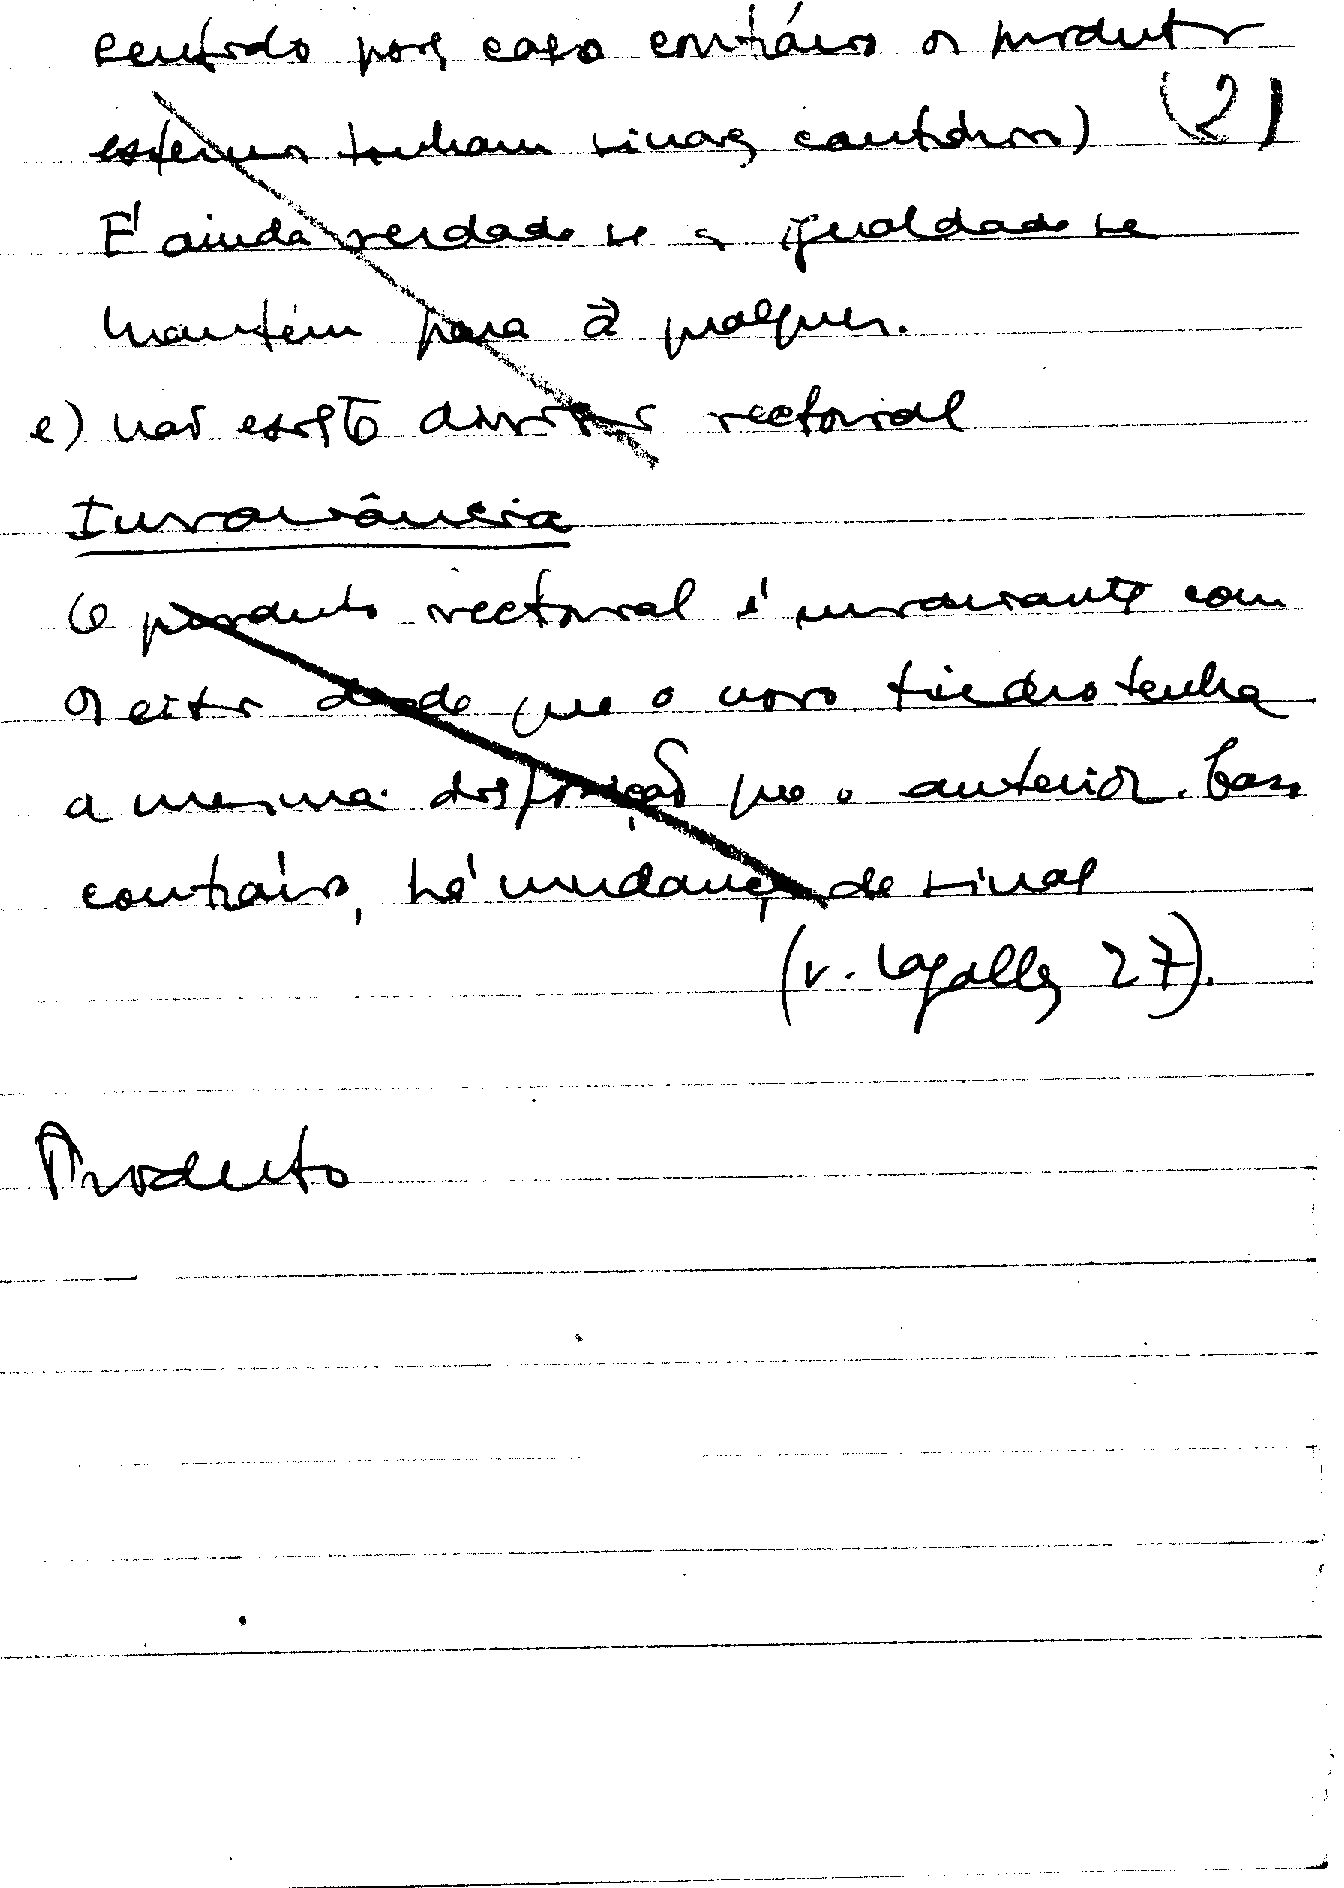 sentido pois caso contrário os produtos
externos tenham sinais contrários) (2)
É ainda verdade se a igualdade se
mantém para a⃗ qualquer.
e) não existe divisão vectorial
Invariância
O produto vectorial é invariante com
os eixos desde que o novo triedro tenha
a mesma disposição que o anterior. Caso
contrário, há mudança de sinal
(v. Lagally 27).
Produto